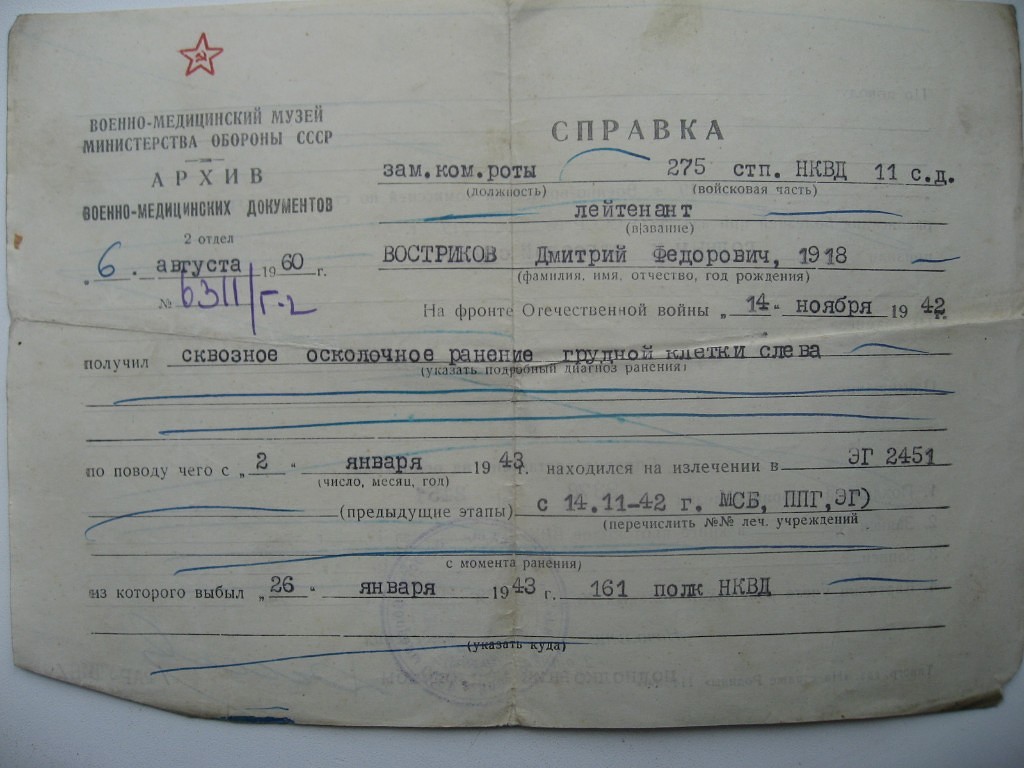 ВОЕННО-МЕДИЦИНСКИЙ МУЗЕЙ
МИНИСТЕРСТВА ОБОРОНЫ СССР
АРХИВ
ВОЕННО-МЕДИЦИНСКИХ ДОКУМЕНТОВ
2 отдел
„6. августа 1960 г.
№ 6311/Г-2
СПРАВКА
зам.ком.роты 275 стп. НКВД 11 с.д.
(должность) (войсковая часть)
лейтенант
(звание)
ВОСТРИКОВ Дмитрий Федорович, 1918
(фамилия, имя, отчество, год рождения)
На фронте Отечественной войны „14" ноября 1942 г.
получил сквозное осколочное ранение грудной клетки слева
(указать подробный диагноз ранения)
по поводу чего с „2" января 1943 г. находился на излечении в ЭГ 2451
(число, месяц, год)
(предыдущие этапы) с 14.11-42 г. МСБ, ППГ, ЭГ)
(перечислить №№ леч. учреждений
с момента ранения)
из которого выбыл „26" января 1943 г. 161 полк НКВД
(указать куда)